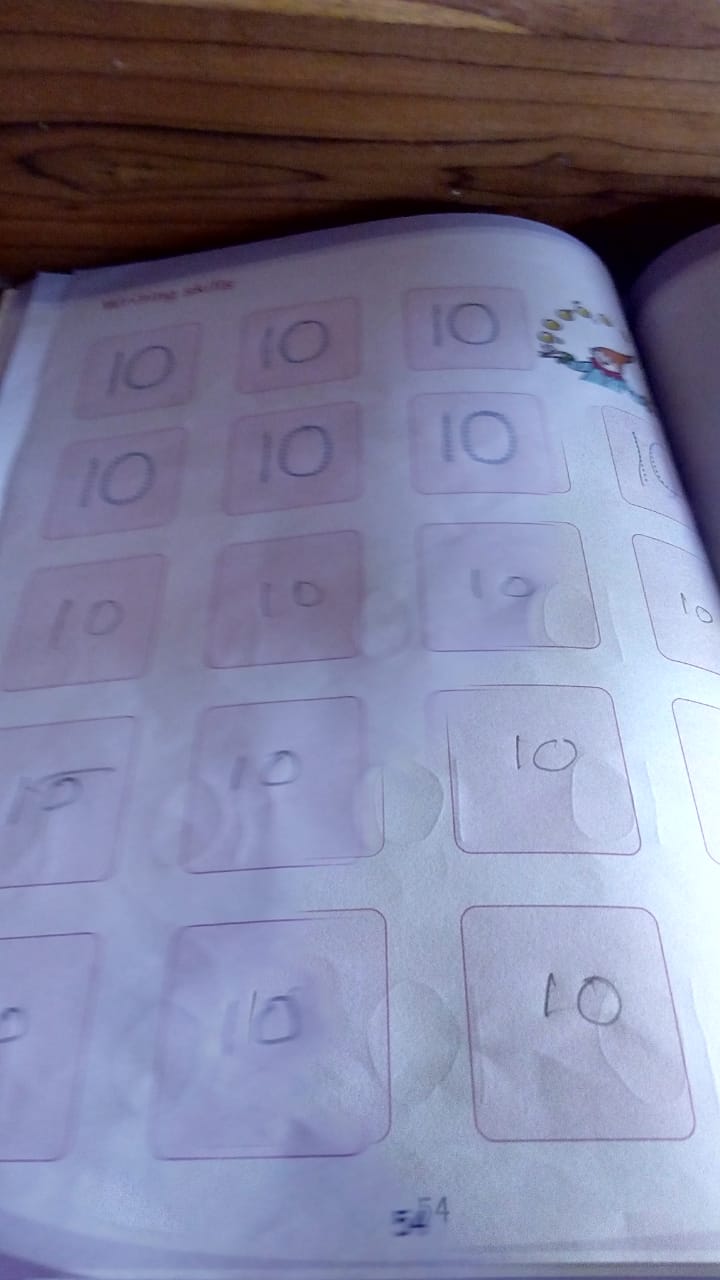 Writing skills
10 10 10
10 10 10 10
10 10 10 10
10 10 10
10 10
54